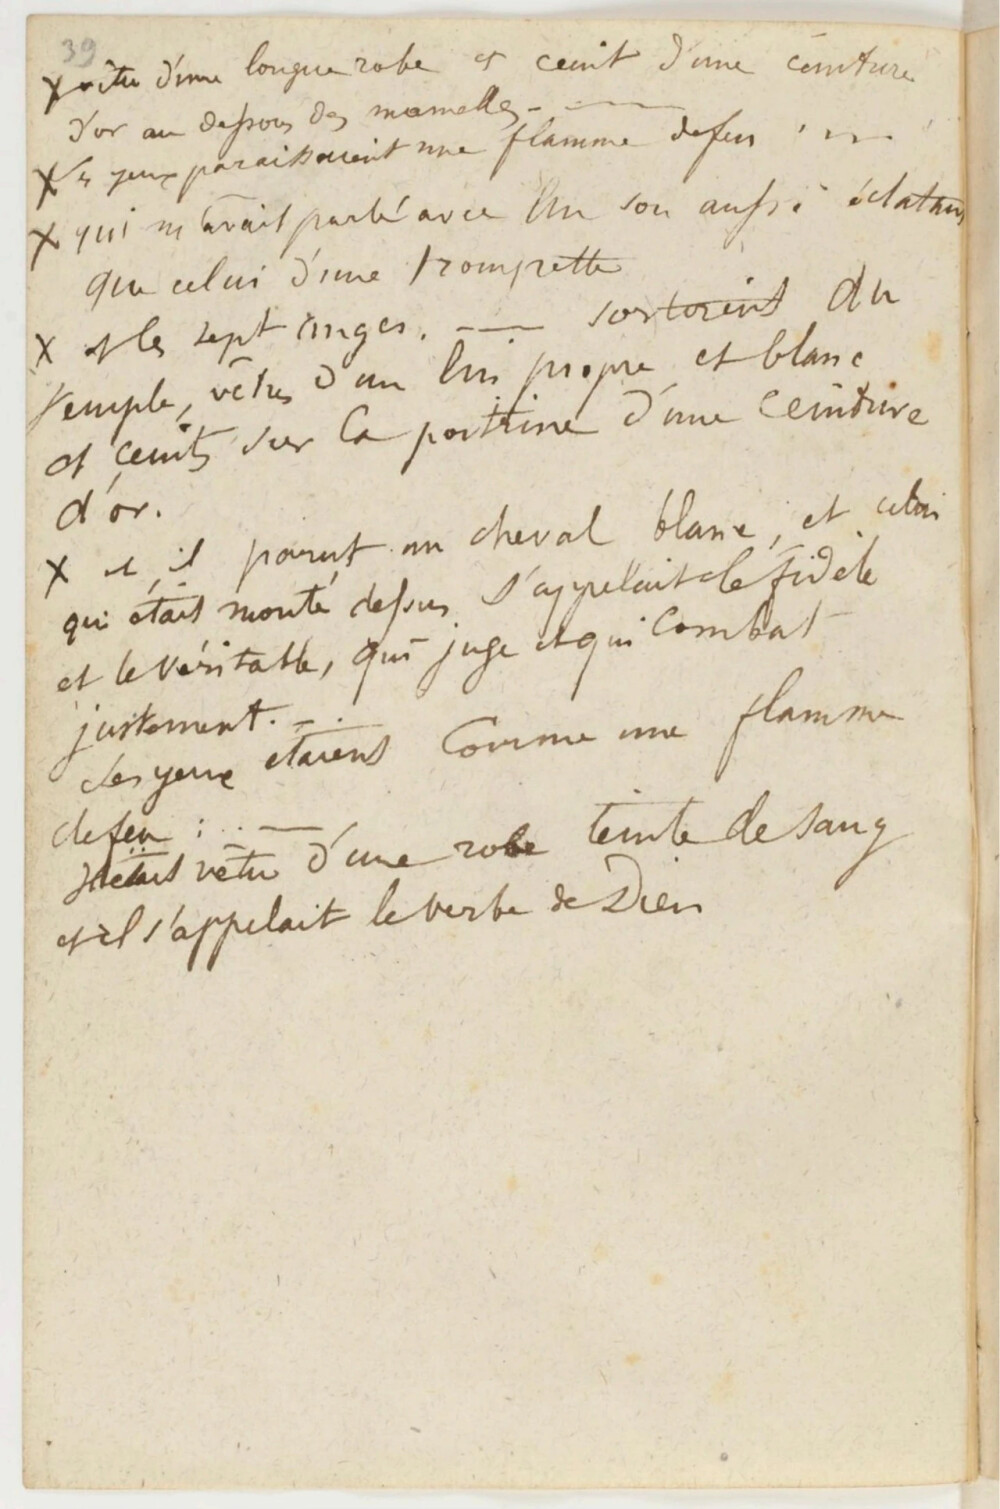 39
X vêtu d'une longue robe et ceint d'une ceinture
d'or au dessous des mamelles - ——
X Ses yeux paraissaient une flamme de feu
X qui m'avait parlé avec un son aussi éclatant
que celui d'une trompette
X et les sept anges. —— sortoient du
temple, vêtus d'un lin propre et blanc
et ceints sur la poitrine d'une ceinture
d'or.
X et il parut un cheval blanc, et celui
qui était monté dessus s'appelait le fidèle
et le véritable, qui juge et qui combat
justement. - . —
Ses yeux étaient Comme une flamme
de feu : .. ——
Il était vêtu d'une robe teinte de sang
et il s'appelait le verbe de Dieu